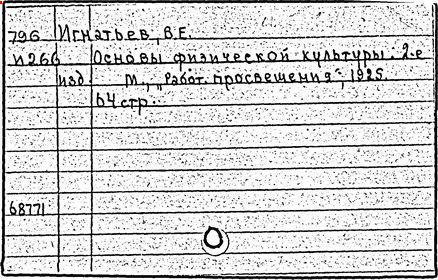 796 Игнатьев, В.Е.
И266 Основы физической культуры. 2-е
изд. М., "Работ. просвещения", 1925.
64 стр.
68771